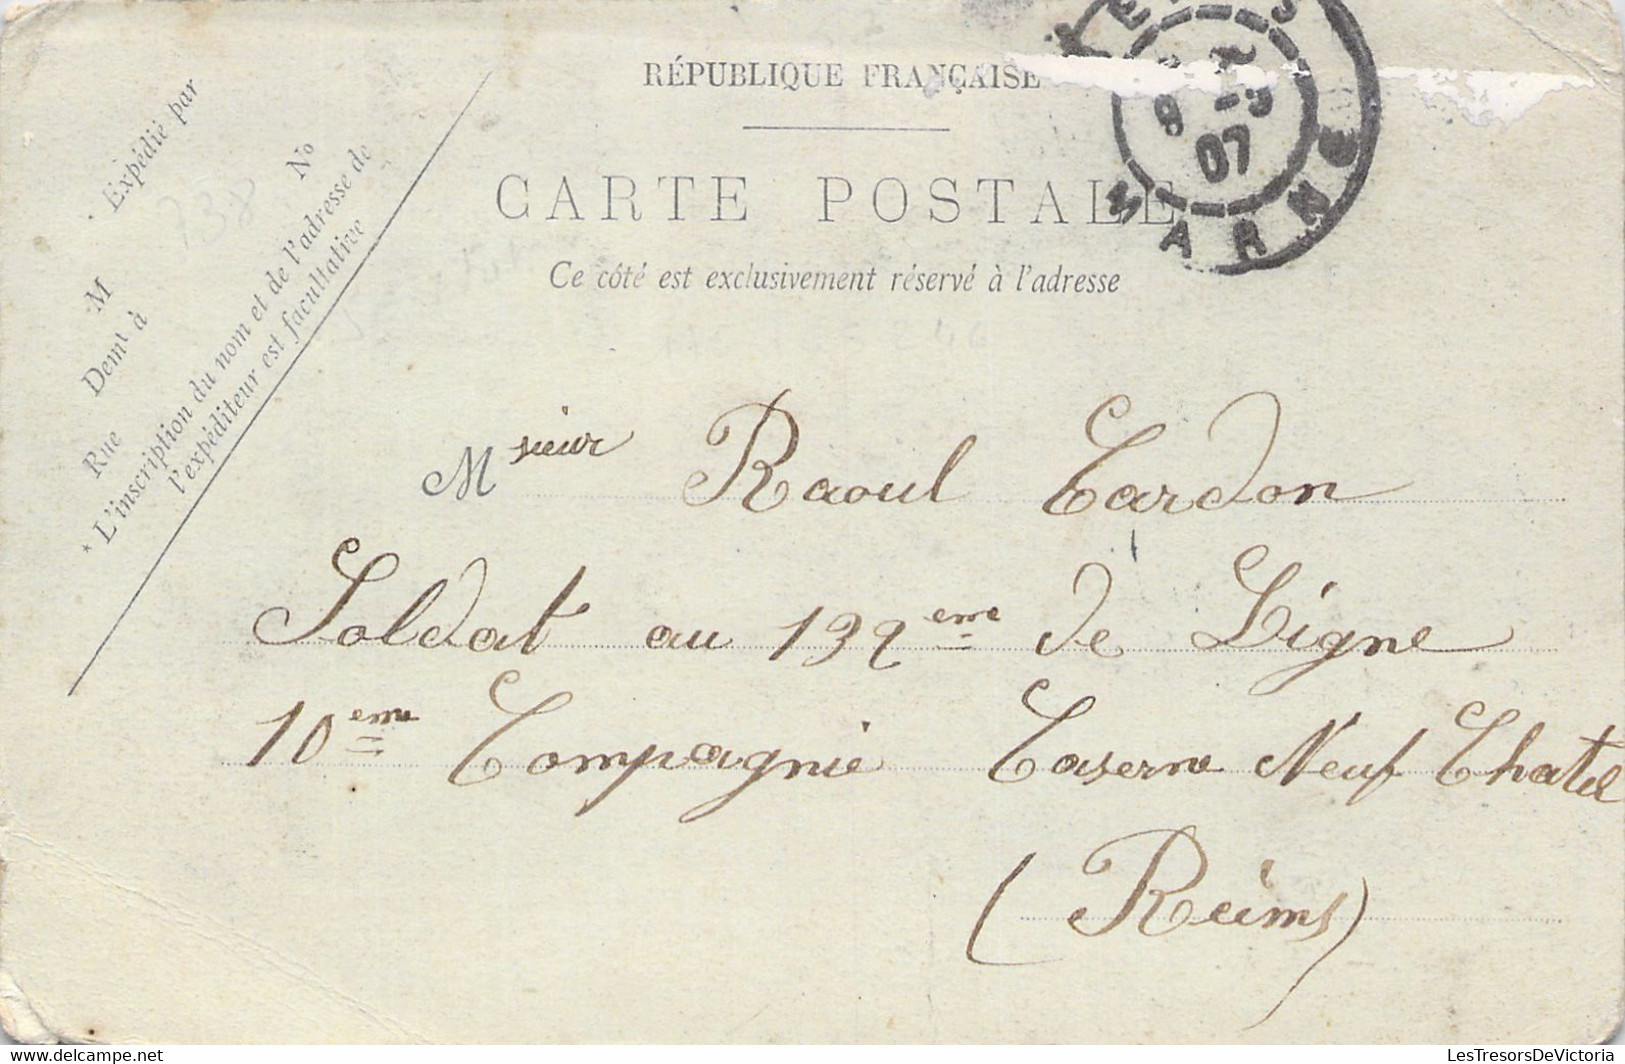 RÉPUBLIQUE FRANÇAISE
CARTE POSTALE
Ce côté est exclusivement réservé à l'adresse
Expédié par
M
Demt à
Rue
No
* L'inscription du nom et de l'adresse de
l'expéditeur est facultative
07
MARNE
Msieur Raoul Tardon
Soldat au 132eme de Ligne
10eme Compagnie Caserne Neuf Chatel
(Reims)
LesTresorsDeVictoria